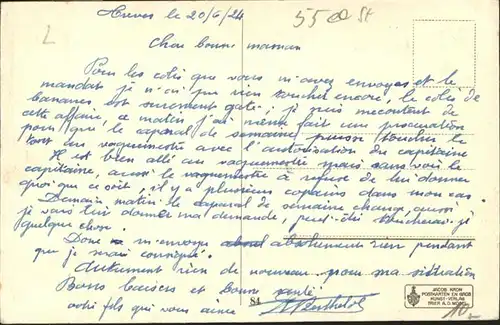 Treves le 20/6/24
55 00 St
Cher bonne maman
Pour les colis que vous m'avez envoyés et le
mandat je n'ai pu rien touché encore, le colis de
bananes est surement gaté, je suis mécontent de
cette affaire, ce matin j'ai même fait une procuration
pour que le caporal de semaine puisse toucher le
tout au vaguemestre avec l'autorisation du capitaine
Il est bien allé au vaguemestre mais sans voir le
capitaine, aussi le vaguemestre a refusé de lui donner
quoi que ce soit, il y a plusieurs copains dans mon cas.
Demain matin le caporal de semaine change, aussi
je vais lui donner ma demande, peut-être toucherai-je
quelque chose.
Donc m'envoyez absolument rien pendant
que je serai consigné.
Autrement rien de nouveau pour ma situation
Bons baisers et bonne santé
votre fils qui vous aime
S4
JACOB KRON
POSTKARTEN EN GROS
KUNST-VERLAG
TRIER A.D. MOSEL
10.-